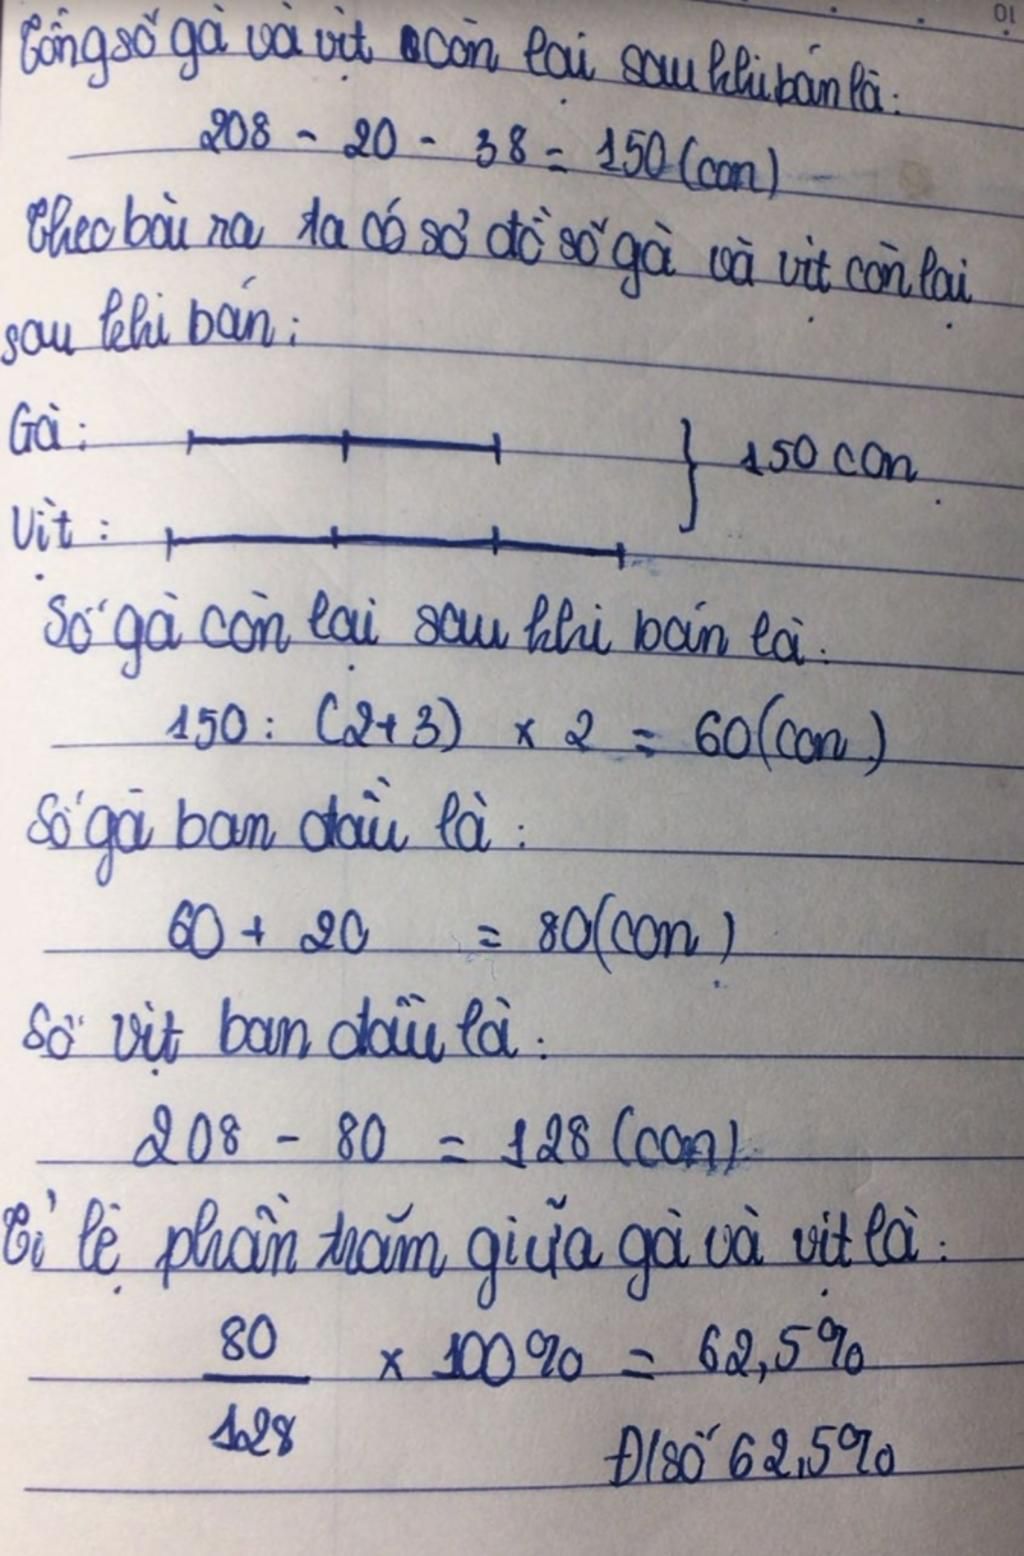 Tổng số gà và vịt còn lại sau khi bán là:
208 - 20 - 38 = 150 (con)
Theo bài ra ta có sơ đồ số gà và vịt còn lại
sau khi bán:
Gà:
150 con
Vịt:
Số gà còn lại sau khi bán là:
150 : (2+3) × 2 = 60 (con)
Số gà ban đầu là:
60 + 20 = 80 (con)
Số vịt ban đầu là:
208 - 80 = 128 (con)
Tỉ lệ phần trăm giữa gà và vịt là:
80
128 × 100% = 62,5%
Đ/số 62,5%